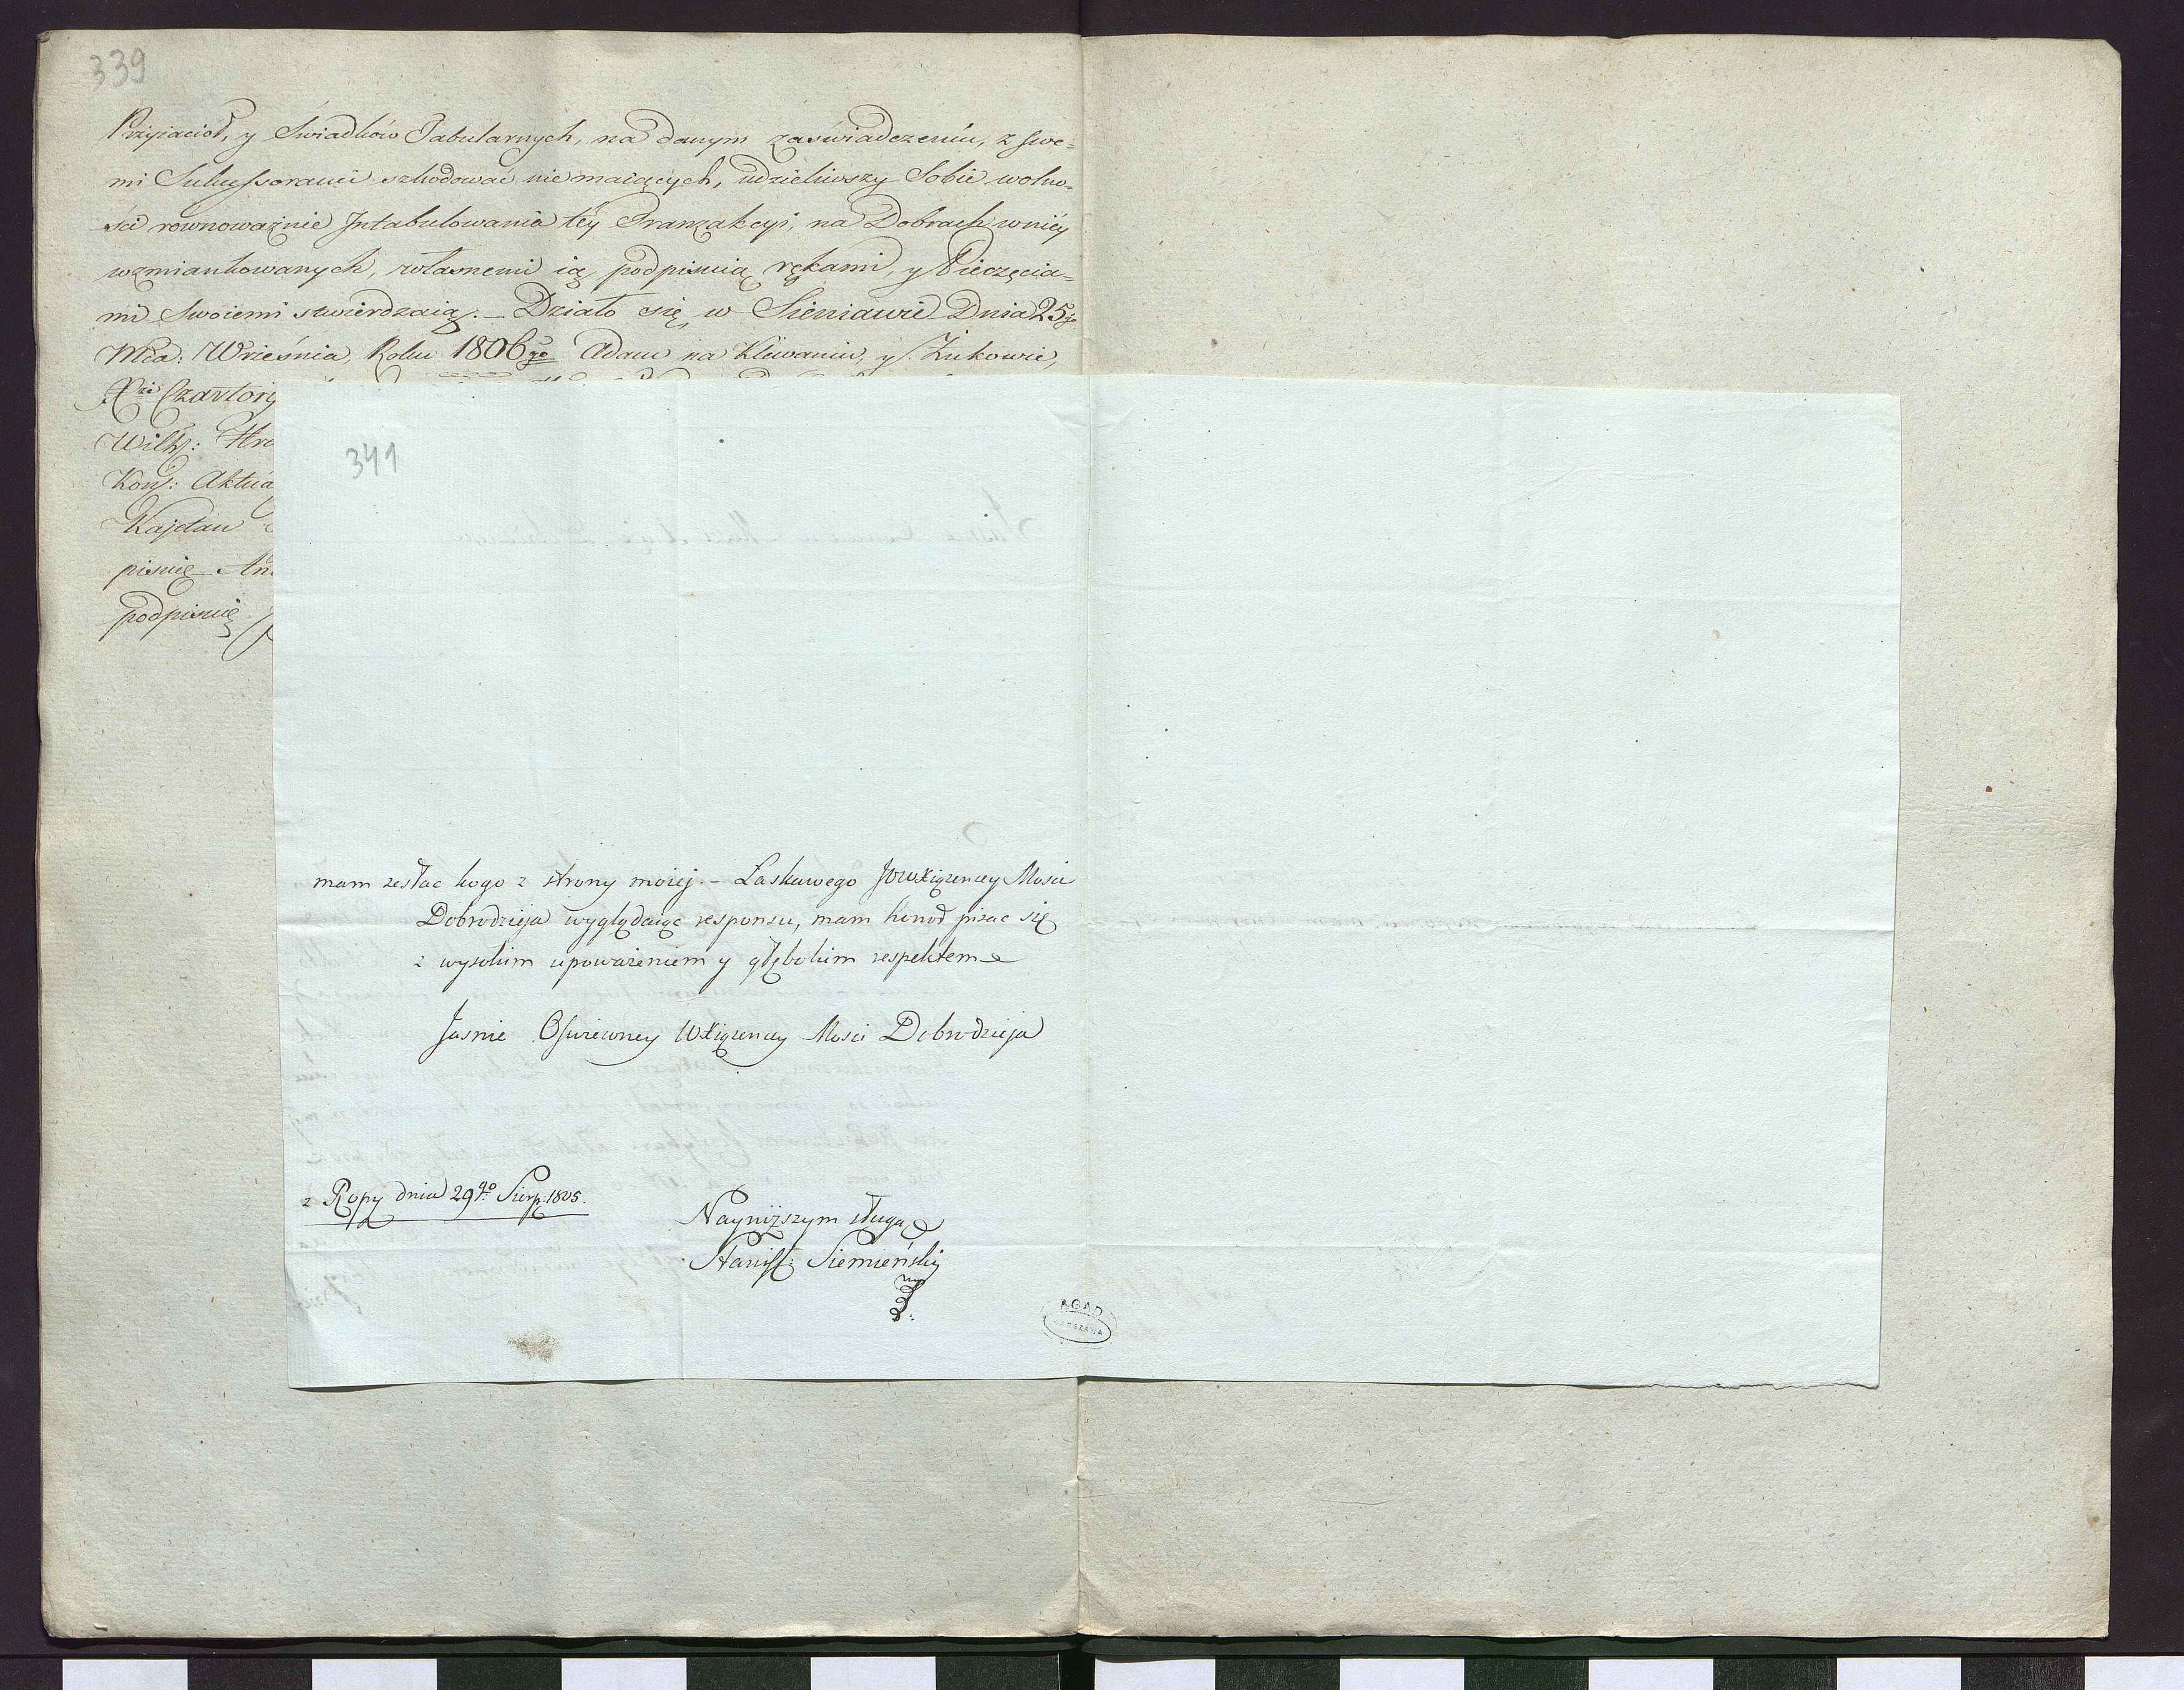 339
Przyiaciół, y Świadków Tabularnych, na danym zaświadczeniu, z swe=
mi Sukcessorami szkodować nie maiących, udzieliwszy Sobie wolno=
ści rownoważnie Intabulowania téy Tranzakcyi, na Dobrach wniéy
wzmiankowanych, własnemi ią podpisuią rękami, y Pieczęcia=
mi Swoiemi stwierdzaią. – Działo się w Sieniawie Dnia 25go
Mca: Września, Roku 1806go Adam na Klewaniu, y Żukowie,
Xże Czartory
Wilh: Hro
Kom: Aktua
Kajetan
pisuię – An
podpisuię
341
mam zesłac kogo z strony mojej. – Łaskawego JOWXiązęncey Mosci
Dobrodzieja wyglądaiąc responsu, mam honor pisac się
z wysokim upoważeniem y głębokim respektem
Jasnie Oświeconey WXiązęncey Mosci Dobrodzieja
z Ropy dnia 29go Sierp: 1805.
Nayniższym sługą
Stanisł: Siemieński
mp
AGAD
WARSZAWA